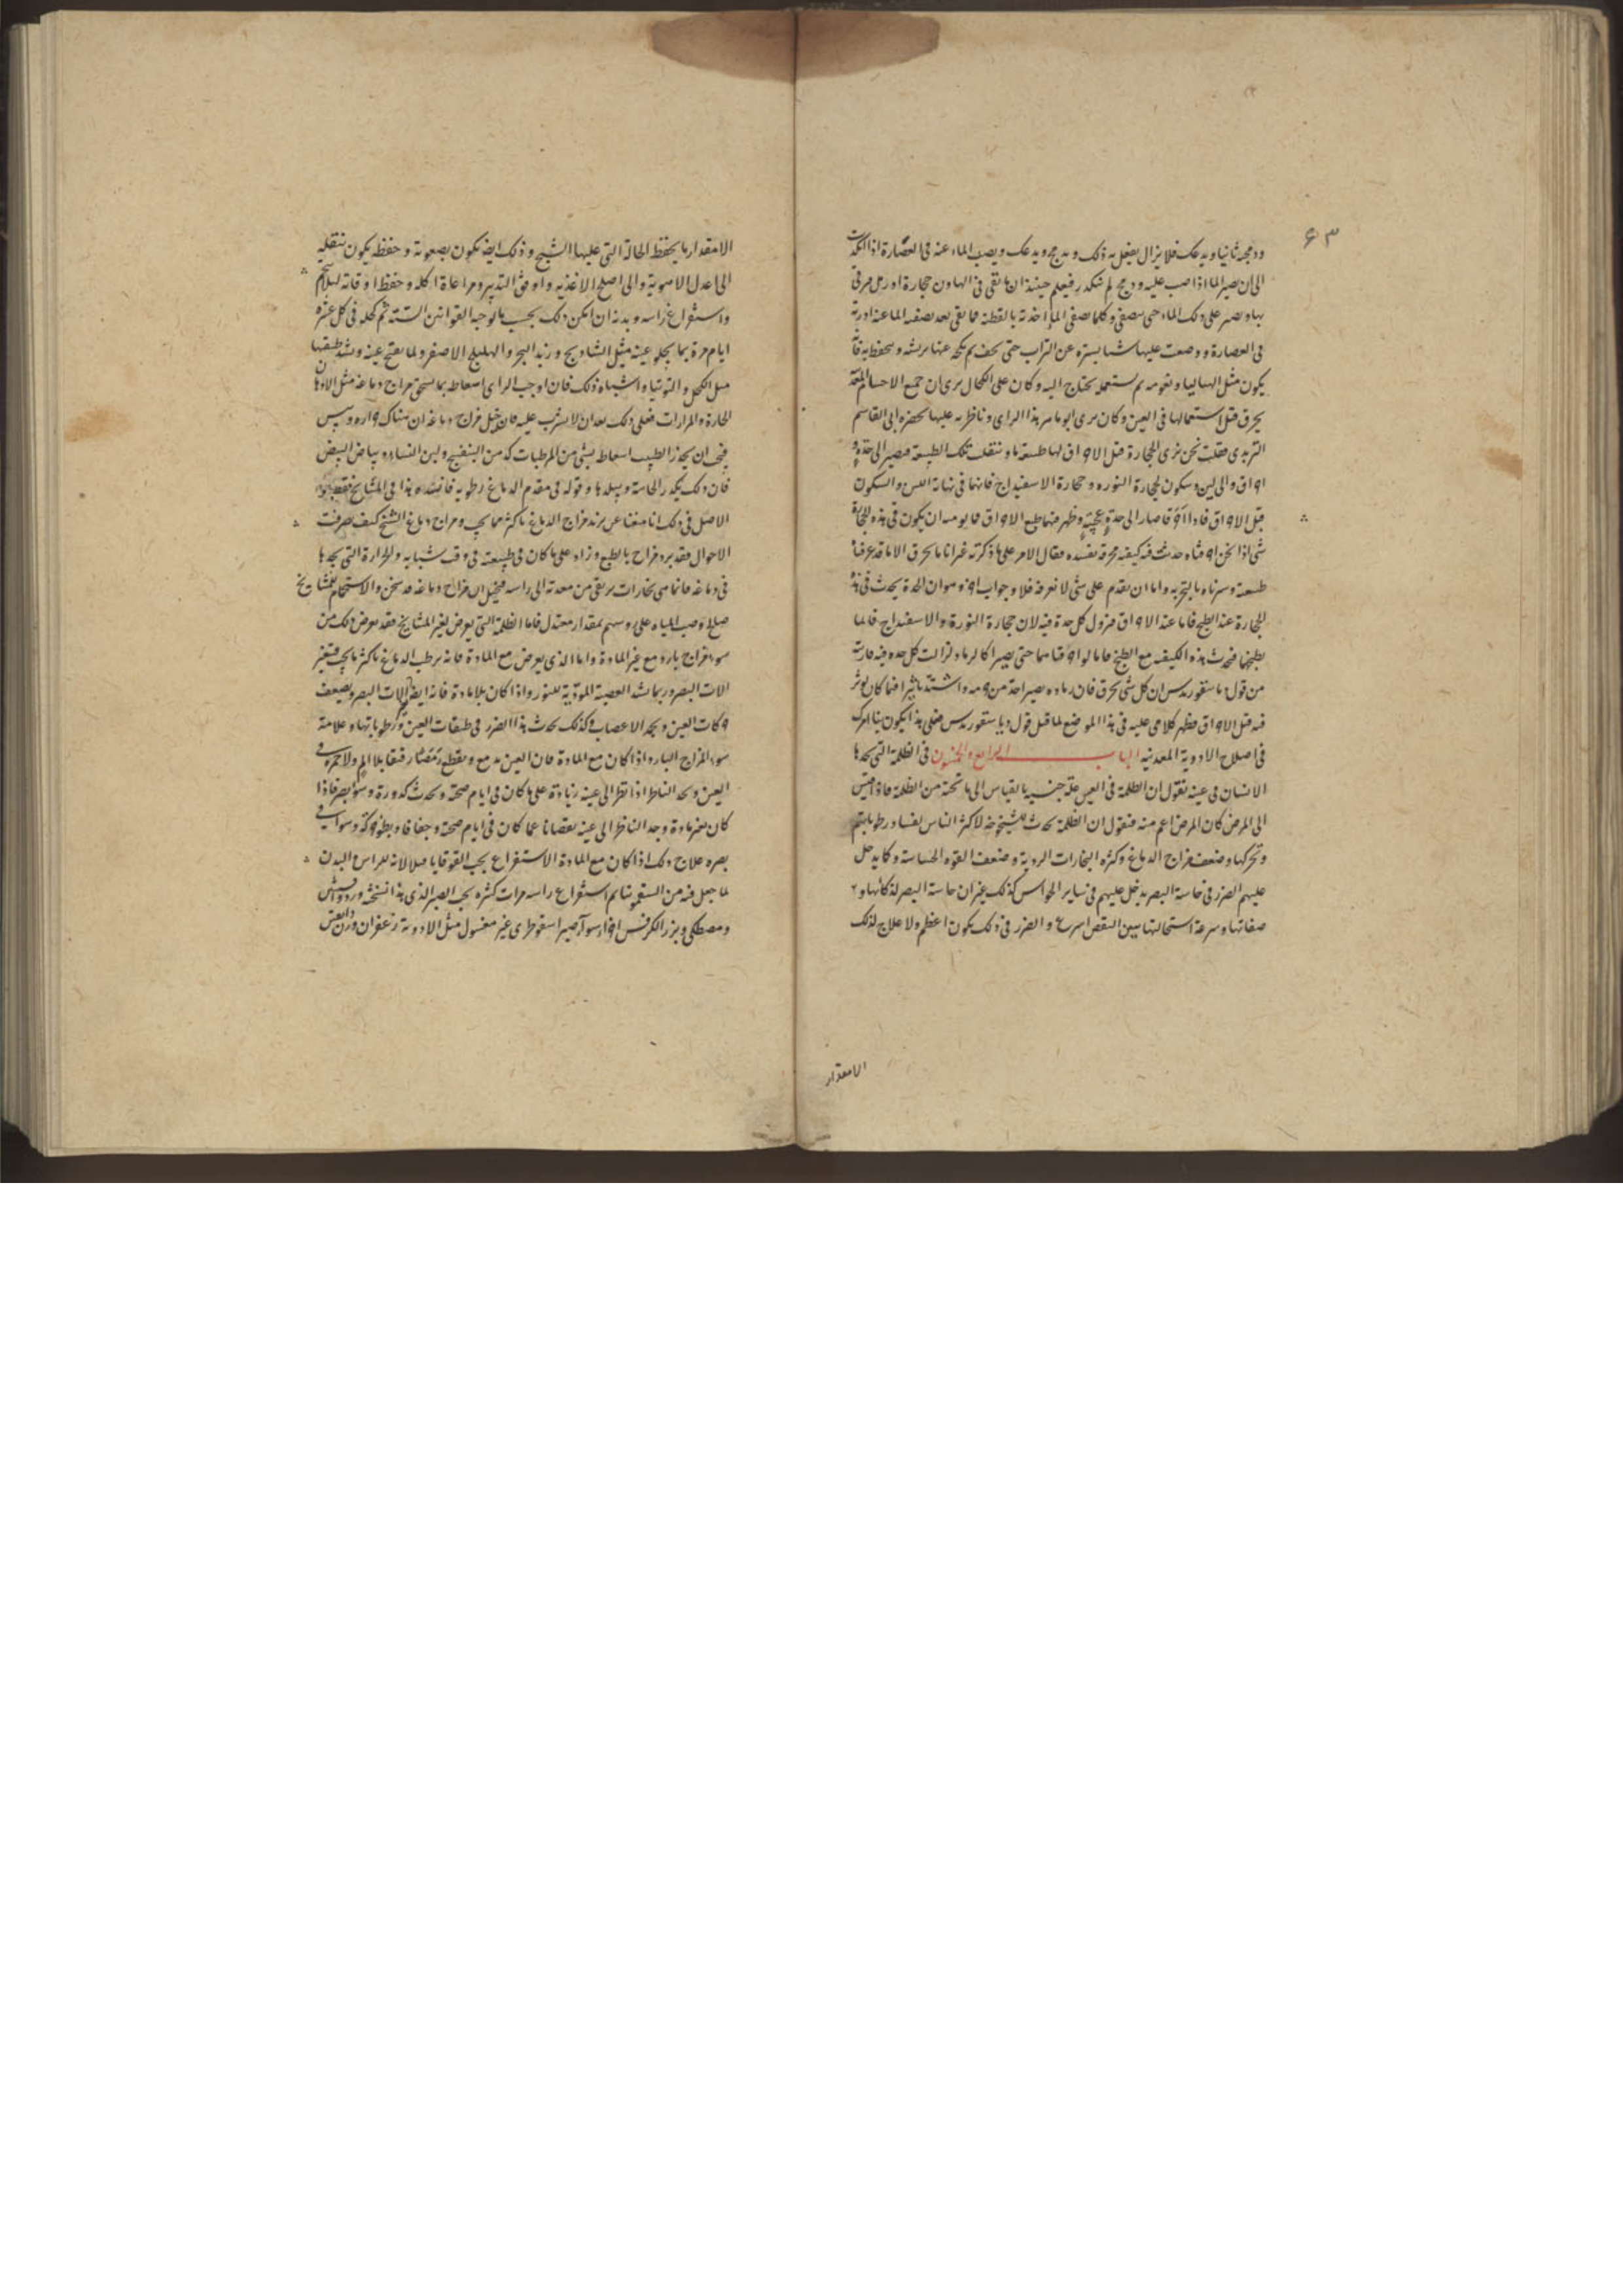 ۶۳
ودمجه ثانيا ويدعك فلا يزال يفعل به ذلك و يدمج ويدعك ويصب الماء عنه فى العصارة اذا
الى ان يصير الما اذا صب عليه ودمج لم يتكدر فيعلم حينئذ ان ما بقى فى الهاون حجارة او رمل
على ذلك الماء حتى يصفى وكلما صفى الما اخذته بالقطنة فما بقى بعد تصفيه الماعنه
فى العصارة ووضعت عليها شيا يستره عن التراب حتى يجف ثم يحكه عنها بريشه
يكون مثل ثم يستعمله يحتاج اليه وكان على الكحال يرى ان جميع الاجسام
يحرق قبل استعمالها فى العين وكان يرى ابو ماهر هذا الراى وناظر به عليها بحضرة ابى القاسم
فقلت نحن نرى الحجارة قبل الاحراق لها طبيعة ما وتنقلب تلك الطبيعة فيصير الى حدة
احراق والى لين وسكون كحجارة النوره وحجارة الاسفيداج فانها فى نهاية اللين والسكون
قبل الاحراق فاذا احرقا صارا الى حدة عجيبة وظهر فيهما طبع الاحراق فما يومنه ان يكون فى هذه الحجارة
شى اذا نحن احرقناه حدث فيه كيفيه محرقة مفسده فقال الامر على ما ذكرته غير انا ما نحرق الا ما قد عرفنا
طبيعته وسبرناه بالتجربه واما ان نقدم على شى لا نعرفه فلا وجواب اخر وهو ان الحدة يحدث فى هذه
الحجارة عند الطبخ فاما عند الاحراق فيزول كل حدة فيه لان حجارة النورة والاسفيداج فانما
يطبخها فيحدث هذه الكيفيه مع الطبخ فاما لو احرقناهما حتى يصيرا كالرماد لزالت كل حده فيه
من قول ان كل شى يحرق فان رماده يصير احد من جرمه واشد تاثيرا فيما كان يوثر
فيه قبل الاحراق فظهر كلامى عليه فى هذا الموضع لما قبل قول فعلى هذا يكون
فى اصلاح الادوية المعدنيه الباب الرابع والخمسون فى الظلمة التى يجدها
الانسان فى عينه نقول ان الظلمة فى العين علة جنسيه بالقياس الى ما تحته من الظلمة فاذا قيس
الى المرض كان المرض اعم منه فنقول ان الظلمة تحدث للشيخوخه لاكثر الناس لفساد رطوباتهم
وتحركها وضعف مزاج الدماغ وكثره البخارات الرديه وضعف القوه الحساسة وكما يدخل
عليهم الضرر فى حاسة البصر يدخل عليهم فى ساير الحواس كذلك غير ان حاسة البصر لذكائها و
صفائها وسرعة استحالتها يبين النقص اسرع والضرر فى ذلك يكون اعظم ولا علاج لذلك
الامقدار
الا مقدار ما يحفظ الحالة التى عليها الشيخ وذلك ايضا يكون بصعوبة وحفظه يكون بنقله
الى اعدل الاهوية والى اصلح الاغذيه واوفق التدبير ومراعاة اكله وحفظ اوقاته
واستفراغ راسه وبدنه ان امكن ذلك بحسب ما توجبه القوانين الستة ثم كحله فى كل عشرة
ايام مرة بما يجلو عينه مثل الشاديج وزبد البحر والهليلج الاصفر ولما يفتح عينه ويشد طبقتها
مثل الكحل والتوتيا واشباه ذلك فان اوجب الراى اسعاطه بما يسخن مزاج دماغه مثل الادهان
الحارة والمرارات فعلى ذلك بعد ان لا يسرف عليه فان تخيل مزاج دماغه ان هناك حراره ويبس
فيجب ان يحذر الطبيب اسعاطه بشى من المرطبات كدهن البنفسج ولبن النساء وبياض البيض
فان ذلك يكدر الحاسة ويبلدها وقوله فى مقدم الدماغ رطوبه هذا فى المشايخ
الاصل فى ذلك برد مزاج الدماغ باكثر مما يجب ومزاج دماغ الشيخ كيف صرفت
الاحوال فقد برد مزاجه بالطبع وزاد على ما كان فى طبيعته فى وقت شبابه والحرارة التى يجدها
فى دماغه فانما هى بخارات يرتقى من معدته الى راسه فيتخيل ان مزاج دماغه قد سخن والاستحمام للمشايخ
صالح وصب المياه على روسهم بمقدار معتدل فاما الظلمة التى يعرض لغير المشايخ فقد يعرض ذلك من
سوء مزاج بارد مع غير المادة واما الذى يعرض مع المادة فانه يرطب الدماغ باكثر ما يجب فيتغير
الات البصر وربما شد العصبة المودية للنور واذا كان بلا مادة فانه ايضا الات البصر ويضعف
حركات العين ويجمد الاعصاب وكذلك يحدث هذا الضرر فى طبقات العين ورطوباتها وعلامة
سوء المزاج البارد اذا كان مع المادة فان العين يدمع بلا الم ولا حمره فى
العين ويجد الناظر اذا نظر الى عينه زيادة على ما كان فى ايام صحته ويحدث كدورة وسوء بصر فاذا
كان بغير مادة وجد الناظر الى عينه نقصانا عما كان فى ايام صحته وجفافا وبطو حركة وسوا فى
بصره علاج ذلك اذا كان مع المادة الاستفراغ بحب القوقايا لانه للراس والبدن
لما جعل فيه من السقمونيا ثم استفراغ راسه مرات كثره بحب الصبر الذى هذا نسخته ورد
ومصطكى وبزر الكرفس اجزاء سوا صبر اسقوطرى غير مغسول مثل الادوية زعفران وزن